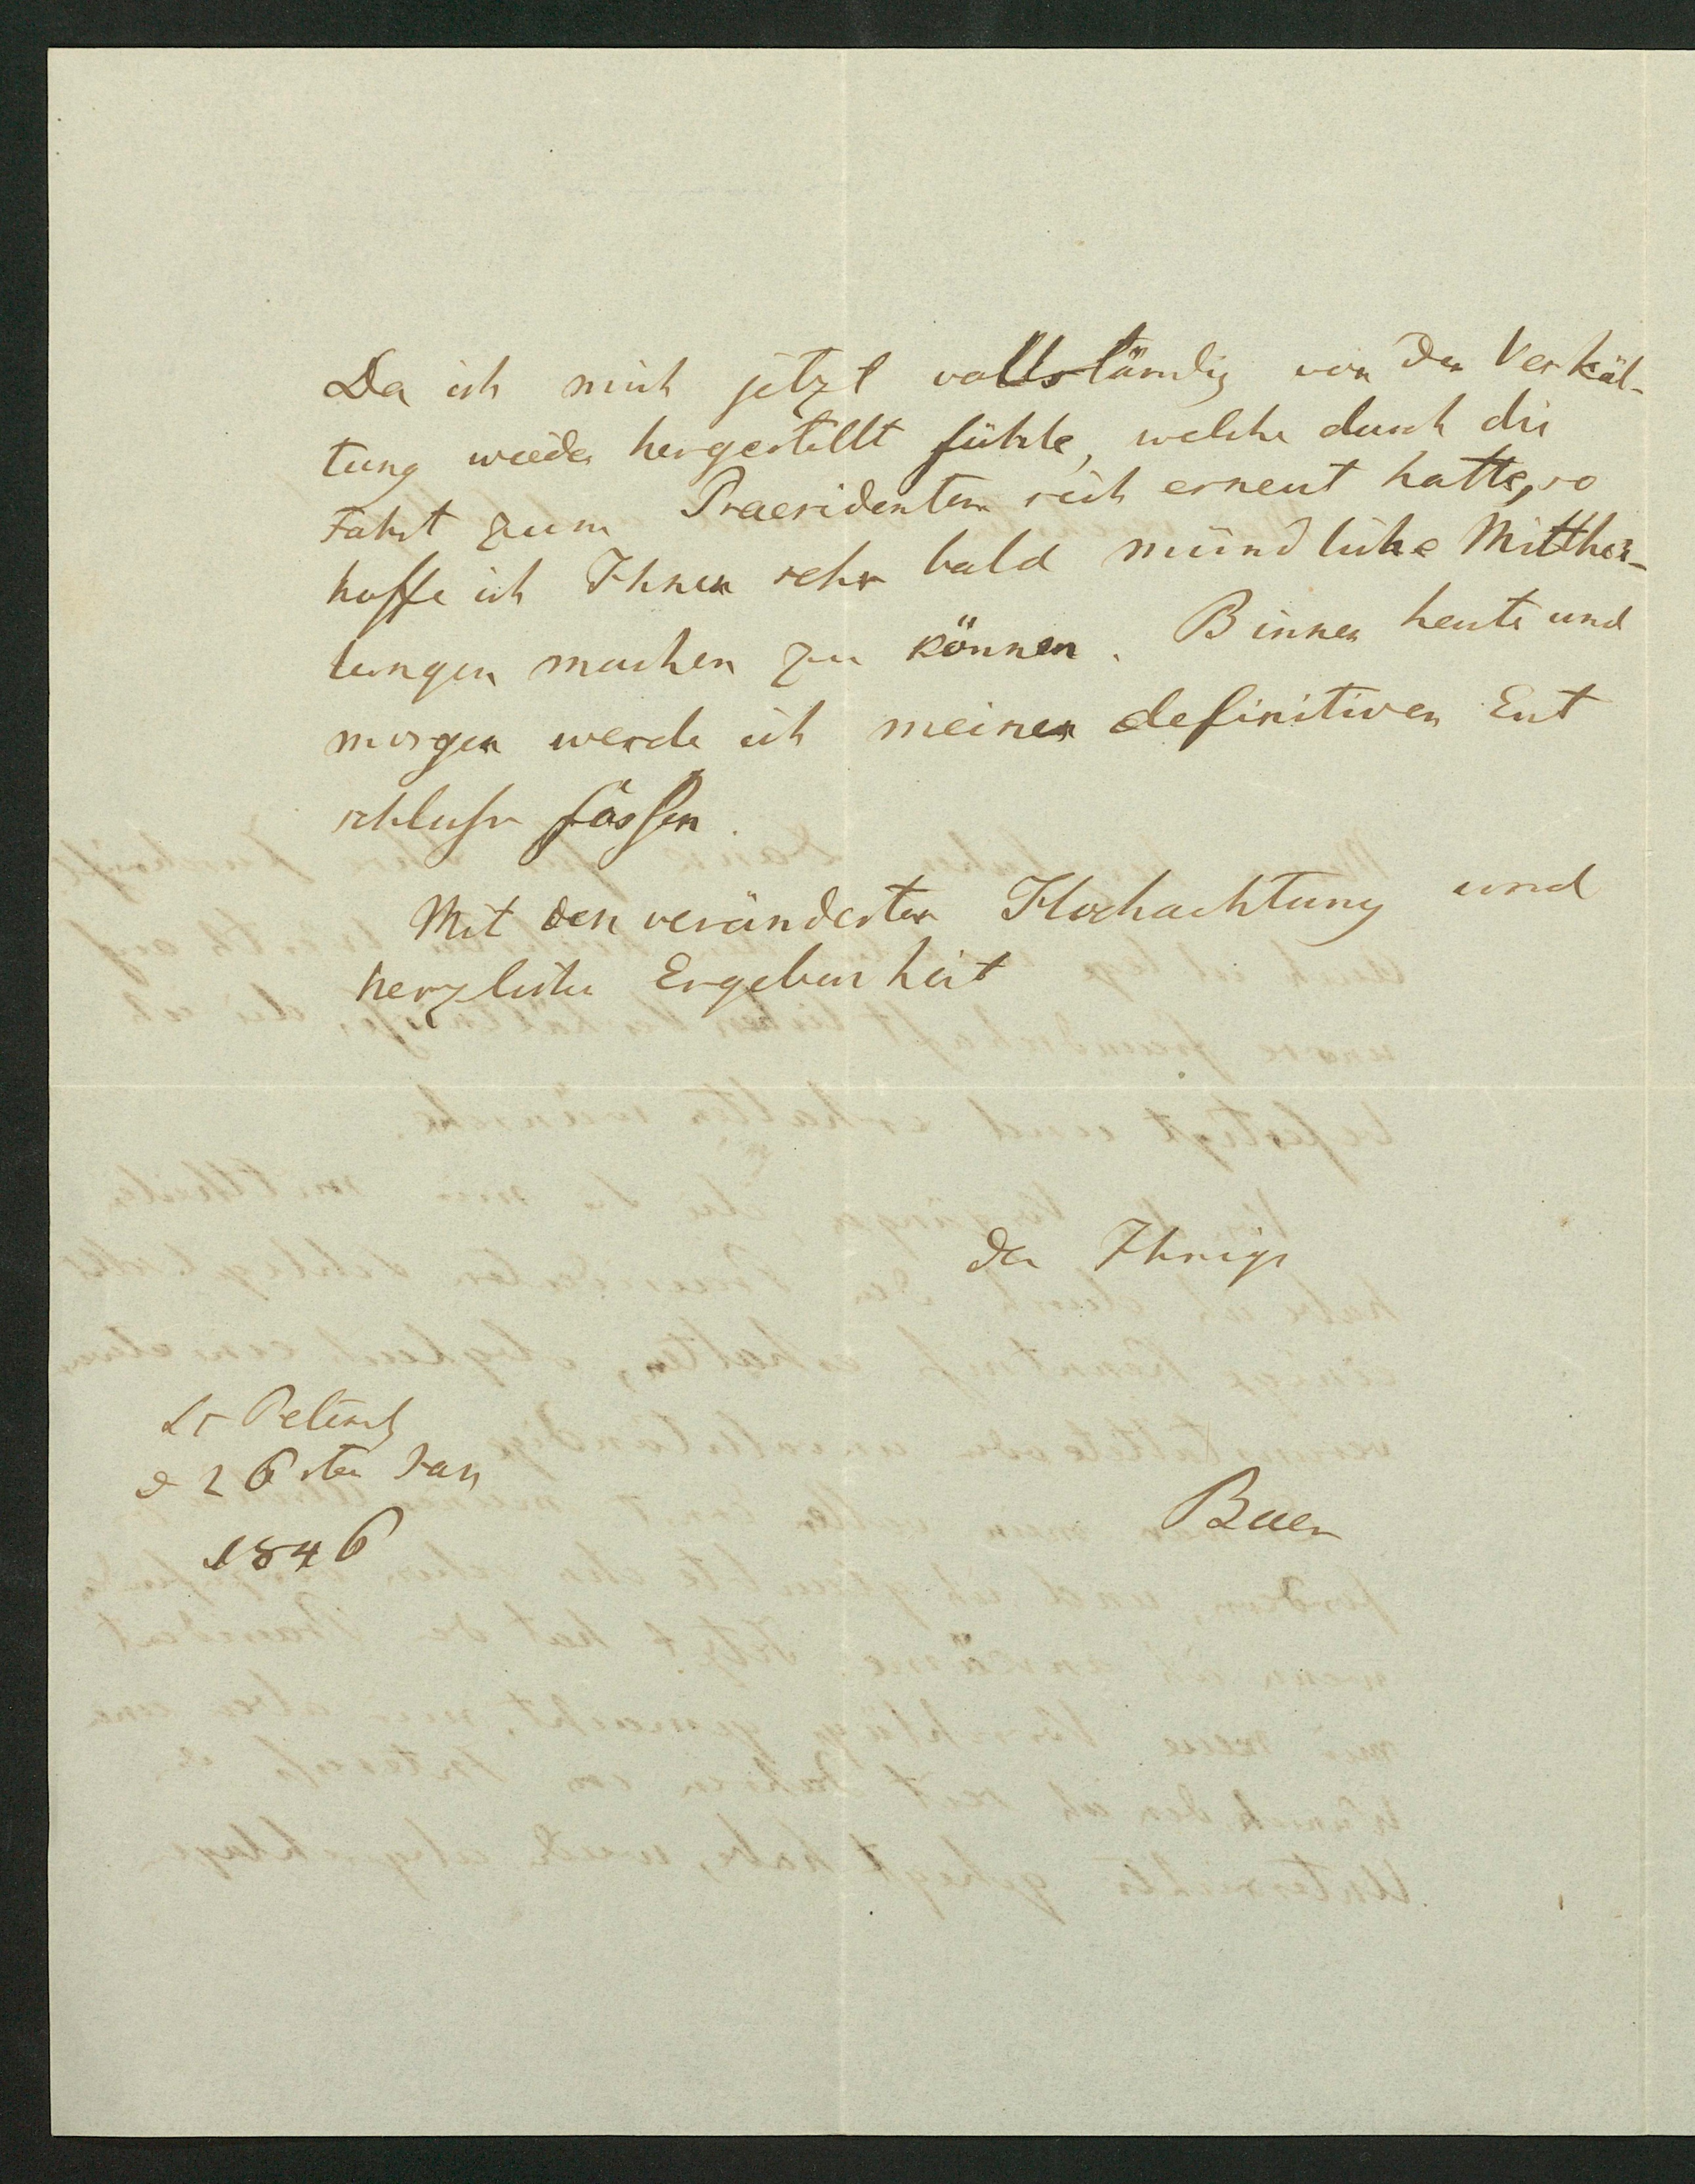 Da ich mich jetzt vollständig von der Verkäl-
tung wieder hergestellt fühle, welche durch die
Fahrt zum Praesidenten sich erneut hatte, so
hoffe ich Ihnen sehr bald mündliche Mitthei-
lungen machen zu können. Binnen heute und
morgen werde ich meinen definitiven Ent
schluss fassen.
Mit
Hochachtung und
herzlicher Ergebenheit
der Ihrige
Baer
St Petersb
d 26sten Jan
1846